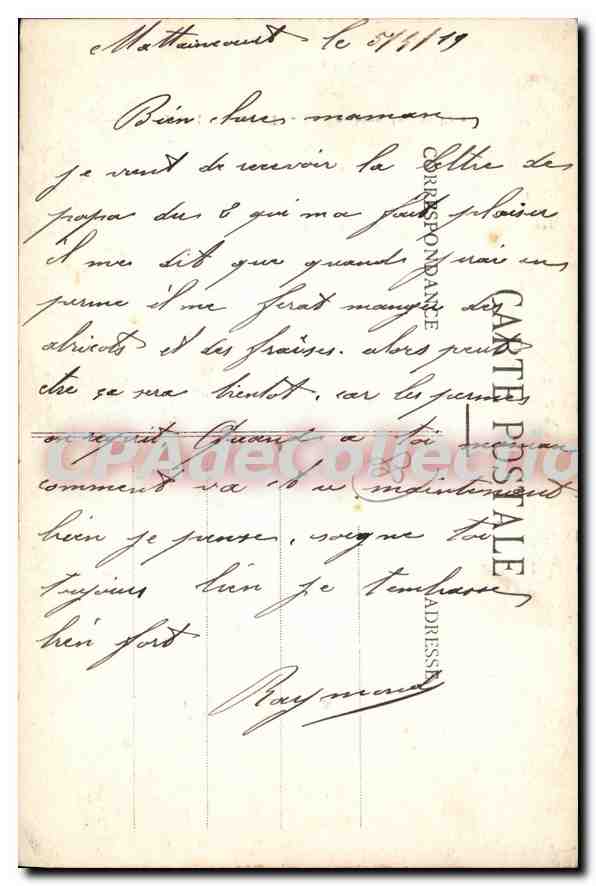 Mattaincourt le 5/5/19
Bien chere maman
je vient de recevoir la lettre des
papa du 2 qui ma fait plaiser
il me dit que quand j'irai en
perme il me ferat manger des
abricots et des fraises. alors peut
etre ça sera bientot, car les permes
on repris. Quand a toi maman
comment va t'u maintenant
bien je pense, soigne toi
toujours bien je t'embrasse
bien fort
Raymond
CARTE POSTALE
CORRESPONDANCE
ADRESSE
CPAdeCollection